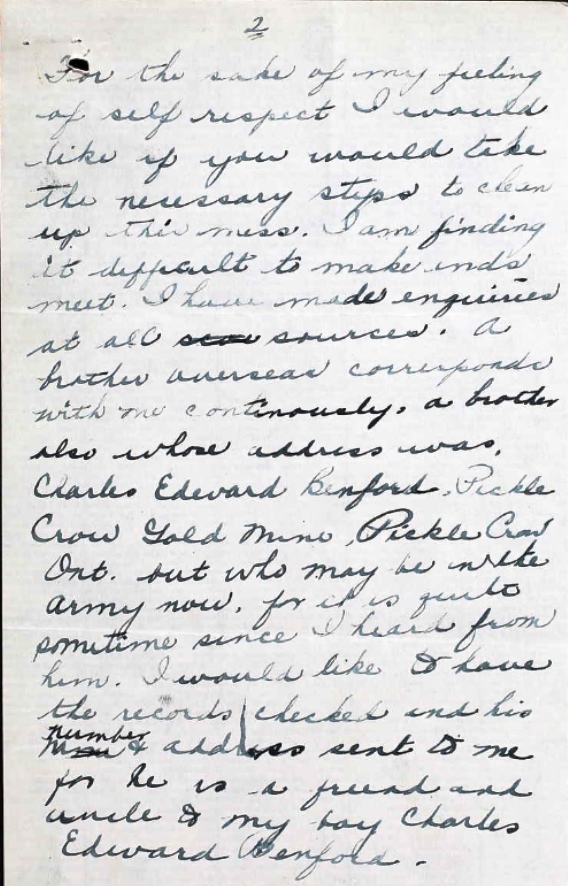 2
For the sake of my feeling
of self respect I would
like if you would take
the necessary steps to clean
up this mess. I am finding
it difficult to make ends
meet. I have made enquiries
at all sources. A
brother overseas corresponds
with me continously, a brother
also whose address was,
Charles Edward Benford, Pickle
Crow Gold Mine, Pickle Crow
Ont. but who may be in the
army now, for it is quite
sometime since I heard from
him. I would like to have
the records checked and his
number & address sent to me
for he is a friend and
uncle to my boy Charles
Edward Benford.